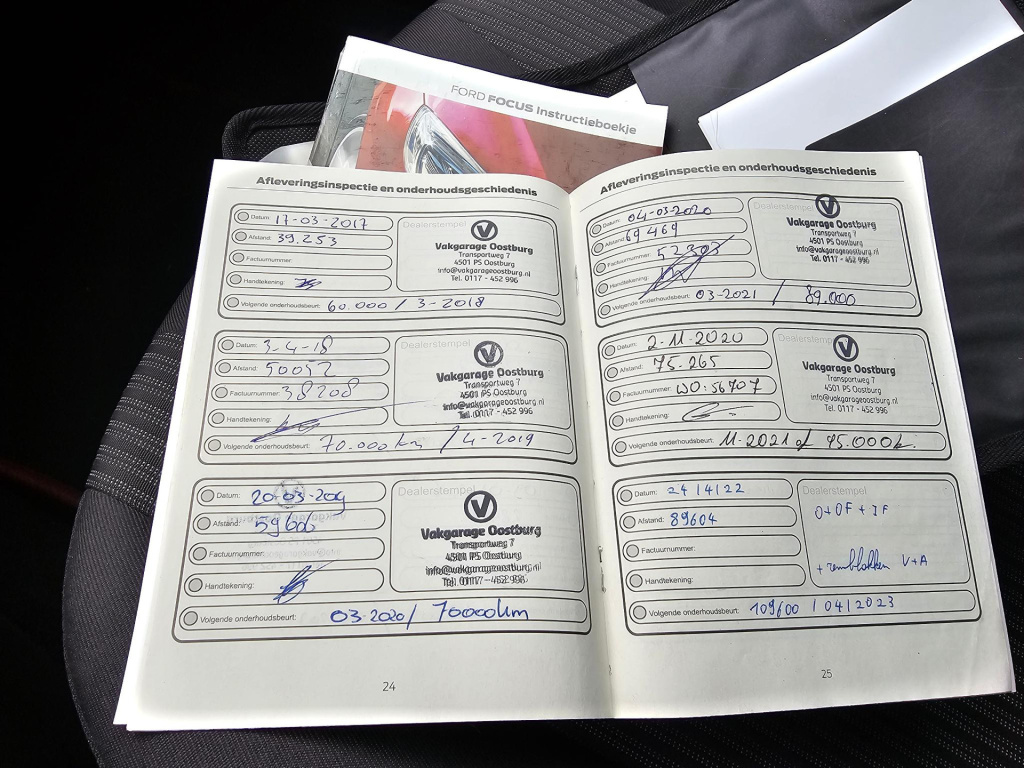 FORD FOCUS Instructieboekje
Afleveringsinspectie en onderhoudsgeschiedenis
Datum: 17-03-2017
Afstand: 39.253
Factuurnummer:
Handtekening:
Volgende onderhoudsbeurt: 60.000 / 3-2018
Dealerstempel
Vakgarage Oostburg
Transportweg 7
4501 PS Oostburg
info@vakgarageoostburg.nl
Tel. 0117 - 452 996
Datum: 3-4-18
Afstand: 50052
Factuurnummer: 38208
Handtekening:
Volgende onderhoudsbeurt: 70.000km / 4-2019
Dealerstempel
Vakgarage Oostburg
Transportweg 7
4501 PS Oostburg
info@vakgarageoostburg.nl
Tel. 0117 - 452 996
Datum: 20-03-209
Afstand: 59606
Factuurnummer:
Handtekening:
Volgende onderhoudsbeurt: 03-2020/ 70000km
Dealerstempel
Vakgarage Oostburg
Transportweg 7
4501 PS Oostburg
info@vakgarageoostburg.nl
Tel. 0117 - 452 996
24
Afleveringsinspectie en onderhoudsgeschiedenis
Datum: 04-03-2020
Afstand: 69469
Factuurnummer:
Handtekening:
Volgende onderhoudsbeurt: 03-2021 / 89.000
Dealerstempel
Vakgarage Oostburg
Transportweg 7
4501 PS Oostburg
info@vakgarageoostburg.nl
Tel. 0117 - 452 996
Datum: 2-11-2020
Afstand: 75.265
Factuurnummer: WO:56707
Handtekening:
Volgende onderhoudsbeurt: 11-2021 of 95.000k.
Dealerstempel
Vakgarage Oostburg
Transportweg 7
4501 PS Oostburg
info@vakgarageoostburg.nl
Tel. 0117 - 452 996
Datum: 24/4/22
Afstand: 89604
Factuurnummer:
Handtekening:
Volgende onderhoudsbeurt: 109600 / 04/2023
Dealerstempel
O + OF + IF
+ remblokken V+A
25